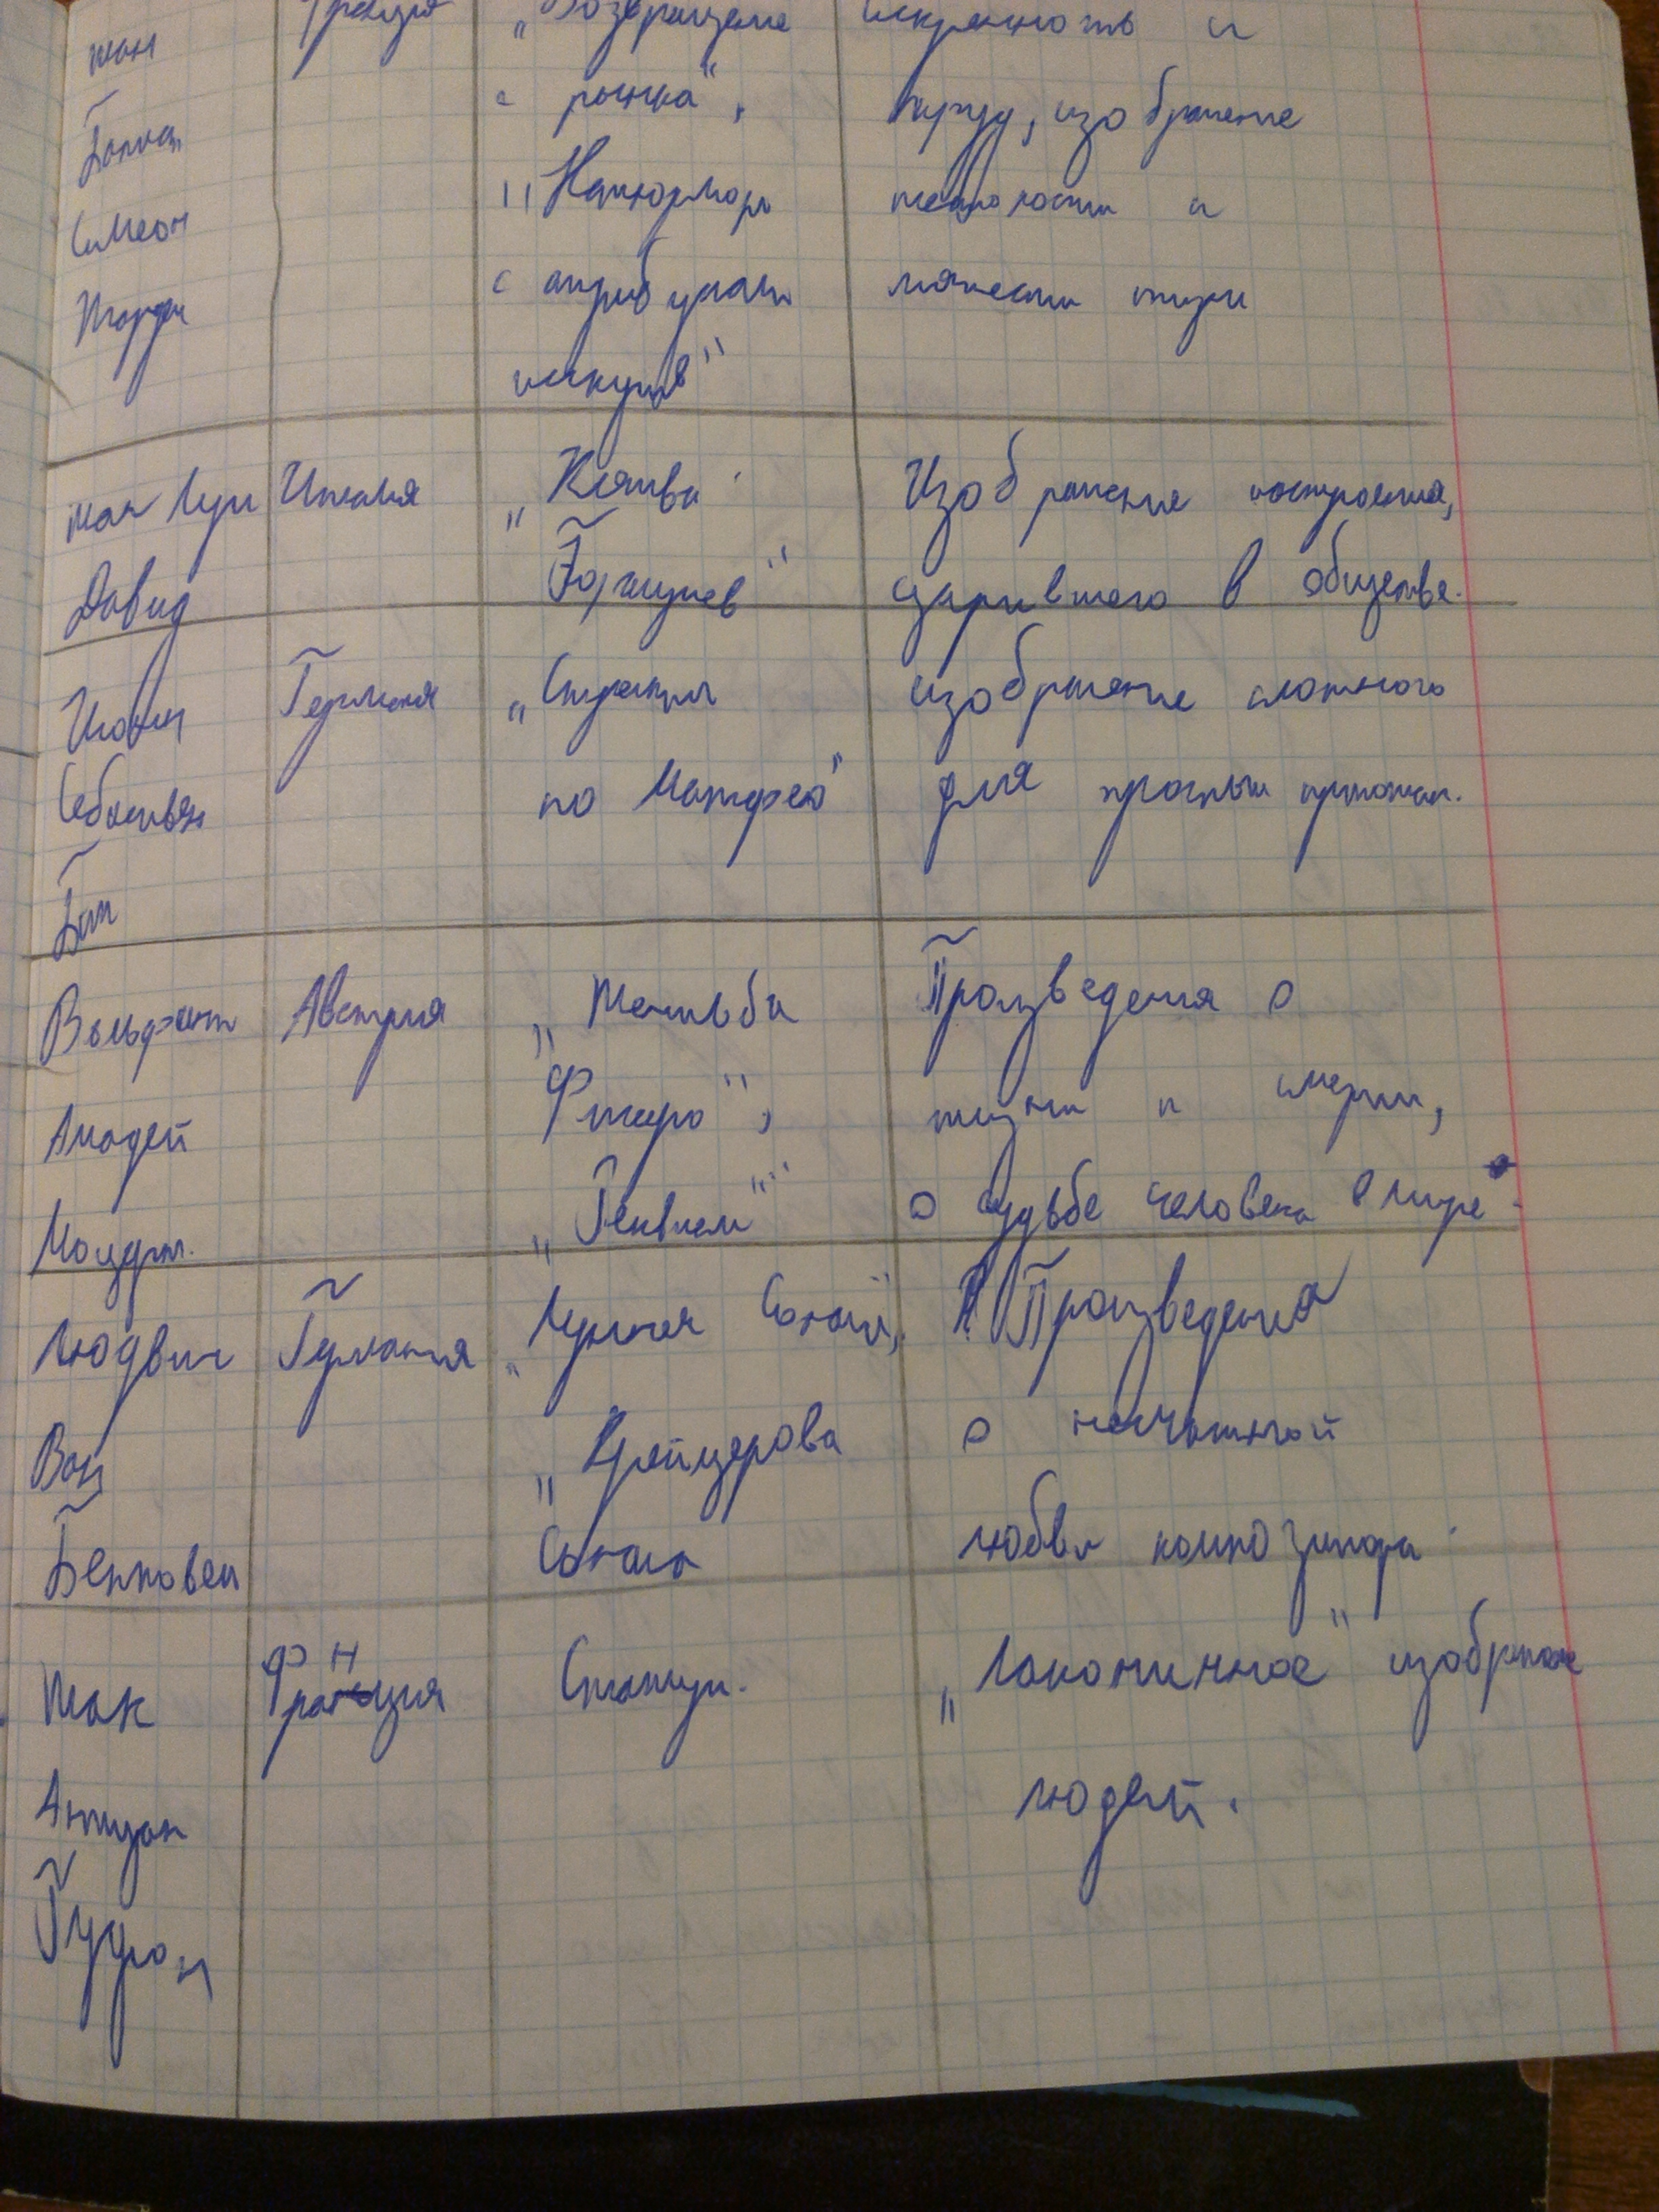 Жан Франция „Возвращение искренность и
Батист с рынка",
Симеон „Натюрморт нежности и
Шарден с атрибутами мягкости жизни
искусств"
Жан Луи Италия „Клятва Изображение настроения,
Давид Горациев" царившего в обществе.
Иоганн Германия „Страсти изображение сложного
Себастьян по Матфею" для простых прихожан.
Бах
Вольфганг Австрия „Женитьба Произведения о
Амадей Фигаро", жизни и смерти,
Моцарт. „Реквием" о судьбе человека в мире.
Людвиг Германия „Лунная Соната", Произведения
Ван „Крейцерова о
Бетховен Соната любви композитора.
Жак Франция Статуи. „Лаконичное" изображение
Антуан людей.
Гудон